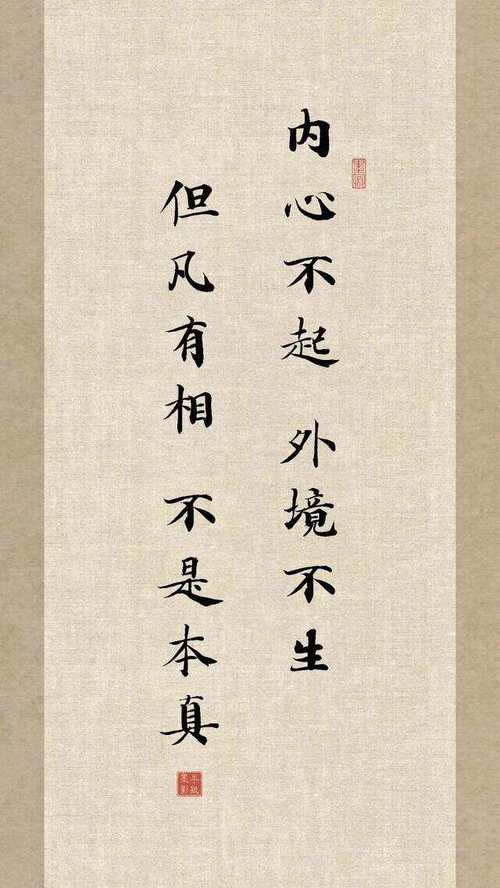 内心不起 外境不生
但凡有相 不是本真